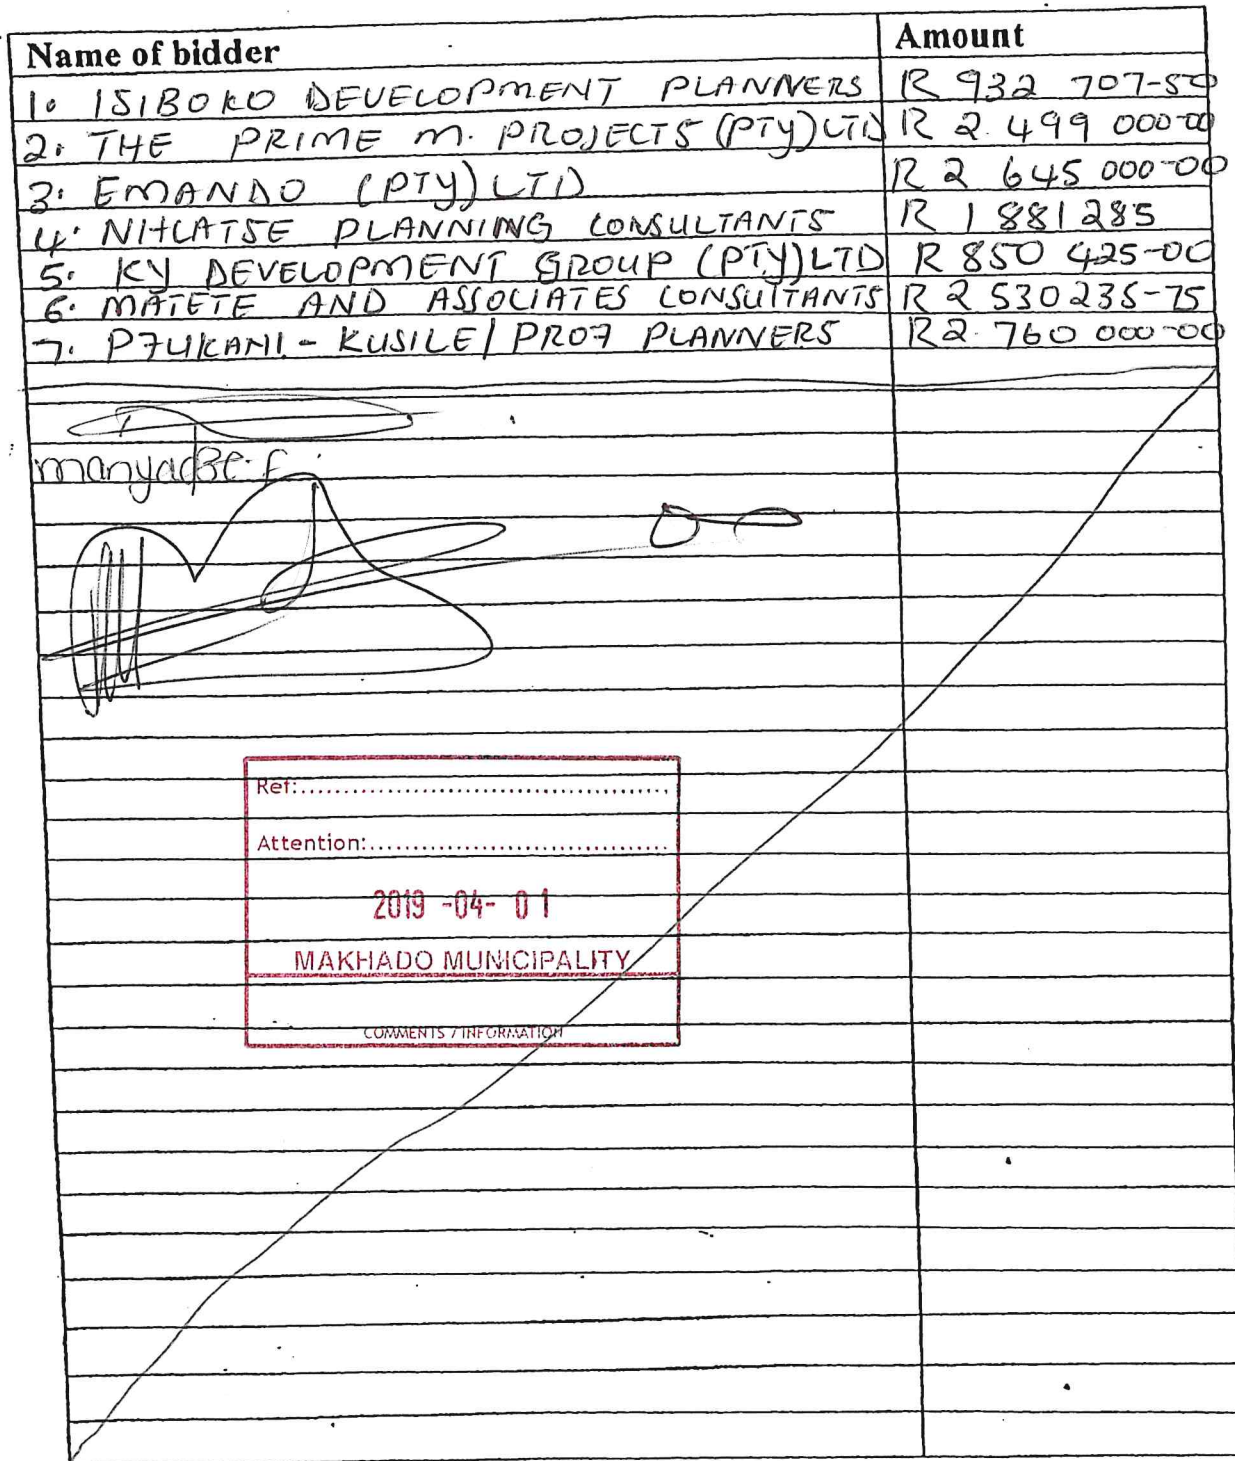 Name of bidder Amount
1. ISIBOKO DEVELOPMENT PLANNERS R 932 707-50
2. THE PRIME M. PROJECTS (PTY) LTD R 2 499 000-00
3. EMANDO (PTY) LTD R 2 645 000-00
4. NHLATSE PLANNING CONSULTANTS R 1 881 285
5. KY DEVELOPMENT GROUP (PTY) LTD R 850 425-00
6. MATETE AND ASSOCIATES CONSULTANTS R 2 530 235-75
7. PHUKANI - KUSILE / PRO7 PLANNERS R2 760 000-00
Ref:
Attention:
2019 -04- 01
MAKHADO MUNICIPALITY
COMMENTS / INFORMATION